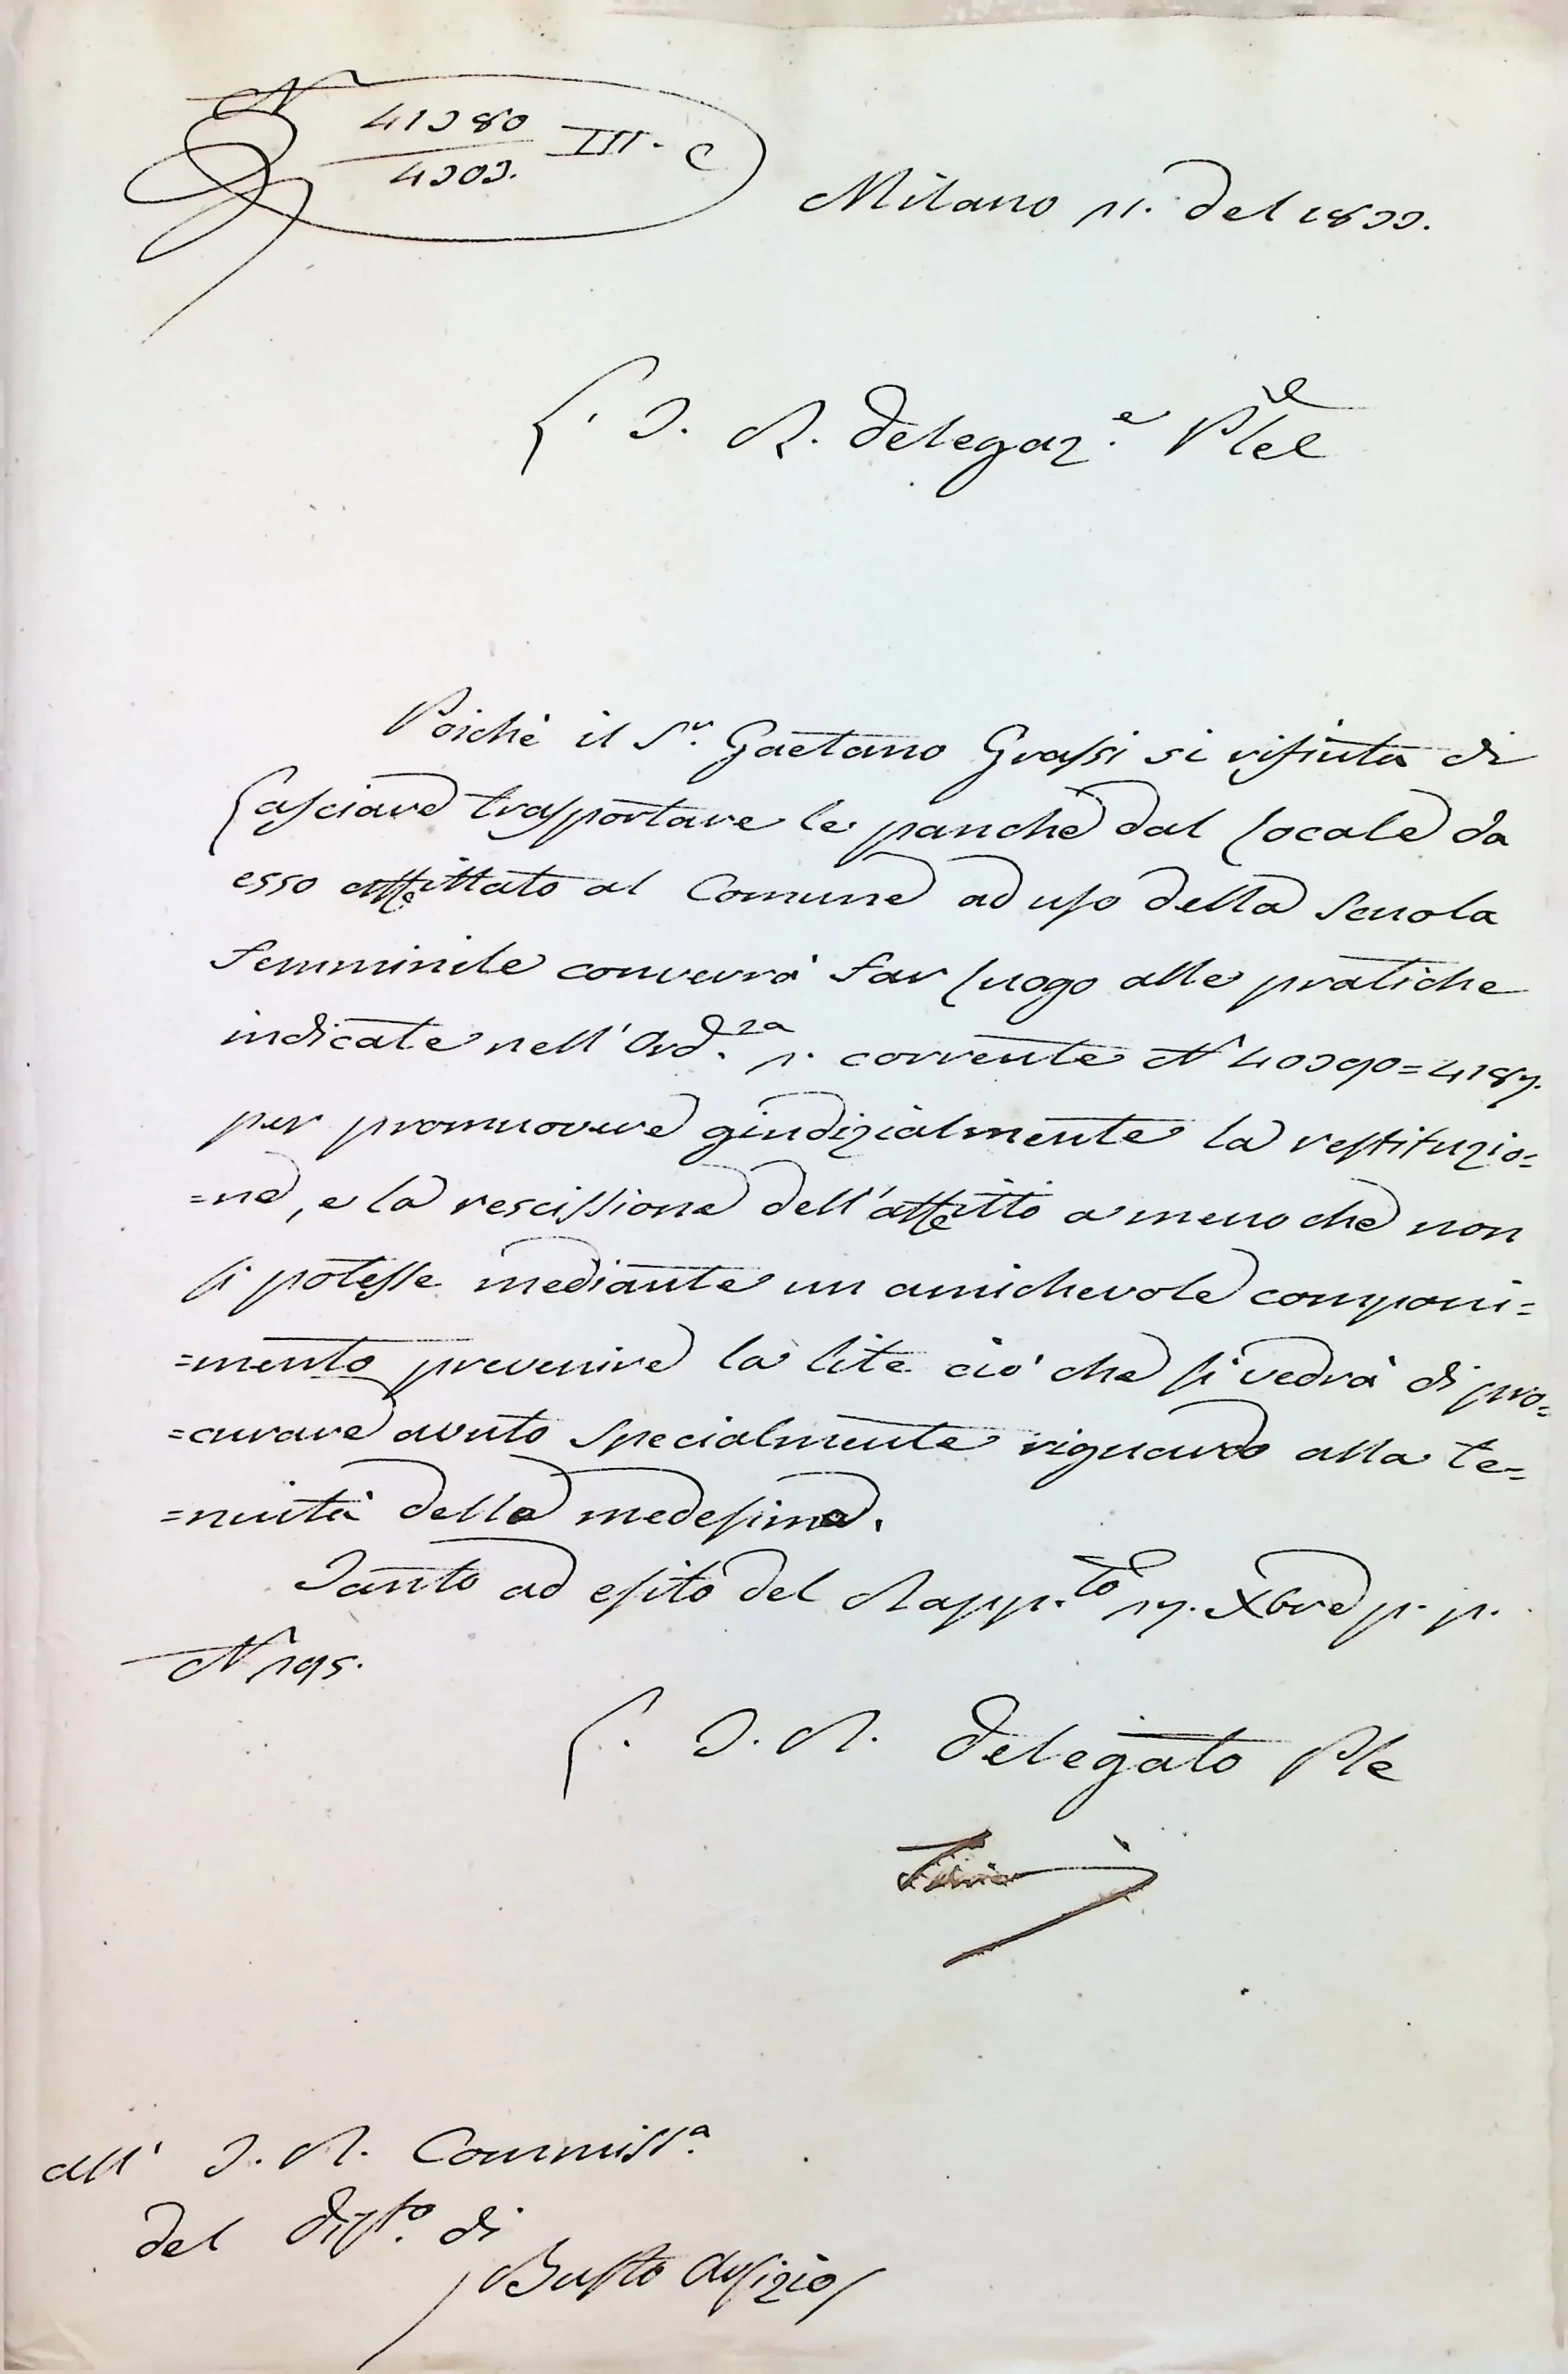 N 41380 III. C
4303.
Milano 11. del 1833.
L. I. R. Delegaz.e Ple
Poichè il Sr. Gaetano Grassi si rifiuta di
lasciare trasportare le panche dal locale da
esso affittato al Comune ad uso della Scuola
femminile converrà far luogo alle pratiche
indicate nell'Ord.za 1. corrente N 40390=4187.
per promuovere giudizialmente la restituzio=
=ne, e la rescissione dell'affitto a meno che non
si potesse mediante un amichevole componi=
=mento prevenire la lite ciò che si vedrà di pro=
=curare avuto specialmente riguardo alla te=
=nuità della medesima.
Tanto ad esito del Rapp.to 17. Xbre p. p.
N 195.
L. I. R. Delegato Ple
all' I. R. Commiss.a
del Dist.o di
Busto Arsizio